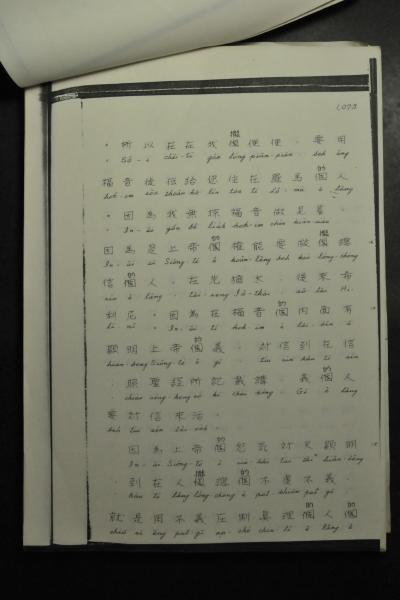 1,073
攏
所以在在我個便便。要用
Só-í góa lóng piān-piān. beh ēng
的
福音 給 住在羅馬個人
hok-im tōa tī Lô-má ê lâng
。因為我無掠福音做見羞。
In-ūi góa bô lia̍h hok-im chòe kiàn-siàu
的 攏
因為是上帝個權能要做個總
In-ūi sī Siōng-tè ê koân-lêng beh
的
信個人。在先猶太。後來希
sìn ê lâng. tāi-seng Iû-thài. āu-lâi Hi-
的
利尼。因為在福音個內面有
lī-nî. In-ūi tī hok-im ê lāi-bīn ū
的
顯明上帝個義。對信到在信
hián-bêng Siōng-tè ê gī. tùi sìn kàu tī sìn
的
。照聖經所記載講。義個人
chiàu sèng-keng só͘ kì-chài kóng. Gī ê lâng
要對信來活。
beh tùi sìn lâi oa̍h.
的
因為上帝個怒氣對天顯明
In-ūi Siōng-tè ê tùi thiⁿ hián-bêng
攏 的
到在人個總個不虔不義。
kàu tī lâng lóng-chóng ê put-khiân put-gī.
的 的
就是用不義壓制真理個人個
chiū sī ēng put-gī ap-chè chin-lí ê lâng ê